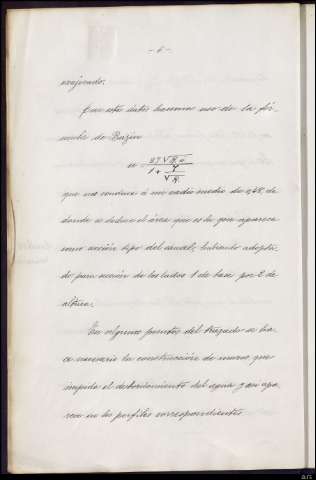 - 6 -
exajerado.
Con estos datos hacemos uso de la fór-
mula de Bazin
u = 87 √R i / 1 + γ / √R
que nos conduce á un radio medio de 0,48, de
donde se deduce el área que es la que aparece
como sección tipo del canal; habiendo adopta-
do para sección de los lados 1 de base por 2 de
altura.
En algunos puntos del trazado se ha-
ce necesario la construcción de muros que
impida el desbordamiento del agua y así apa-
rece en los perfiles correspondientes